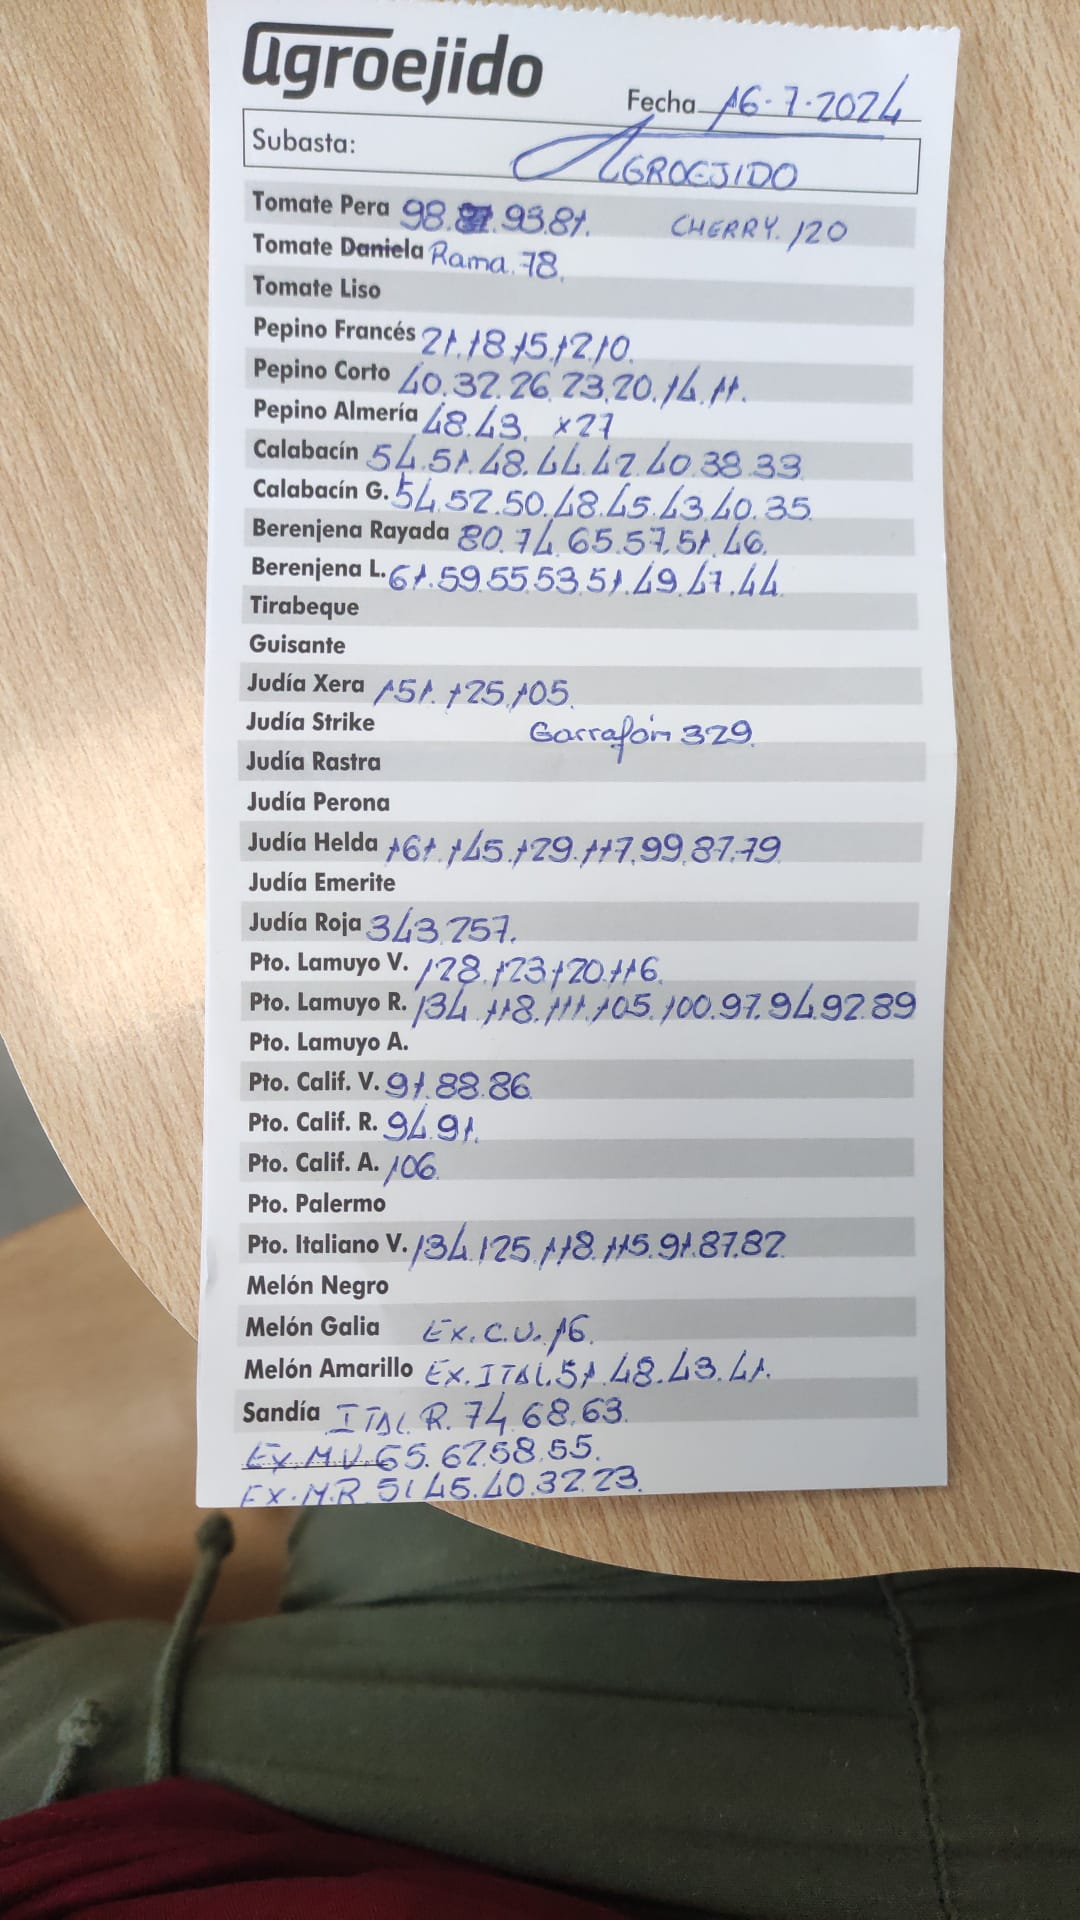 agroejido
Fecha 16-7-2024
Subasta: AGROEJIDO
Tomate Pera 98. 93.81. CHERRY. 120
Tomate Daniela Rama. 78.
Tomate Liso
Pepino Francés 21.18.15.12.10.
Pepino Corto 40.32.26.23.20.14.11.
Pepino Almería 48.43. x27
Calabacín 54.51.48.44.42.40.38.33
Calabacín G. 54.52.50.48.45.43.40.35
Berenjena Rayada 80.74.65.57.51.46.
Berenjena L. 61.59.55.53.51.49.47.44
Tirabeque
Guisante
Judía Xera 151.125.105.
Judía Strike Garrafón 329.
Judía Rastra
Judía Perona
Judía Helda 161.145.129.117.99.87.79
Judía Emerite
Judía Roja 343.257.
Pto. Lamuyo V. 128.123.120.116.
Pto. Lamuyo R. 134.118.111.105.100.97.94.92.89
Pto. Lamuyo A.
Pto. Calif. V. 91.88.86
Pto. Calif. R. 94.91.
Pto. Calif. A. 106
Pto. Palermo
Pto. Italiano V. 134.125.118.115.91.87.82
Melón Negro
Melón Galia EX. C.V. 16.
Melón Amarillo EX. ITAL. 51.48.43.41.
Sandía ITAL R. 74.68.63.
EX.M.V. 65.62.58.55.
EX.M.R. 51.45.40.32.23.